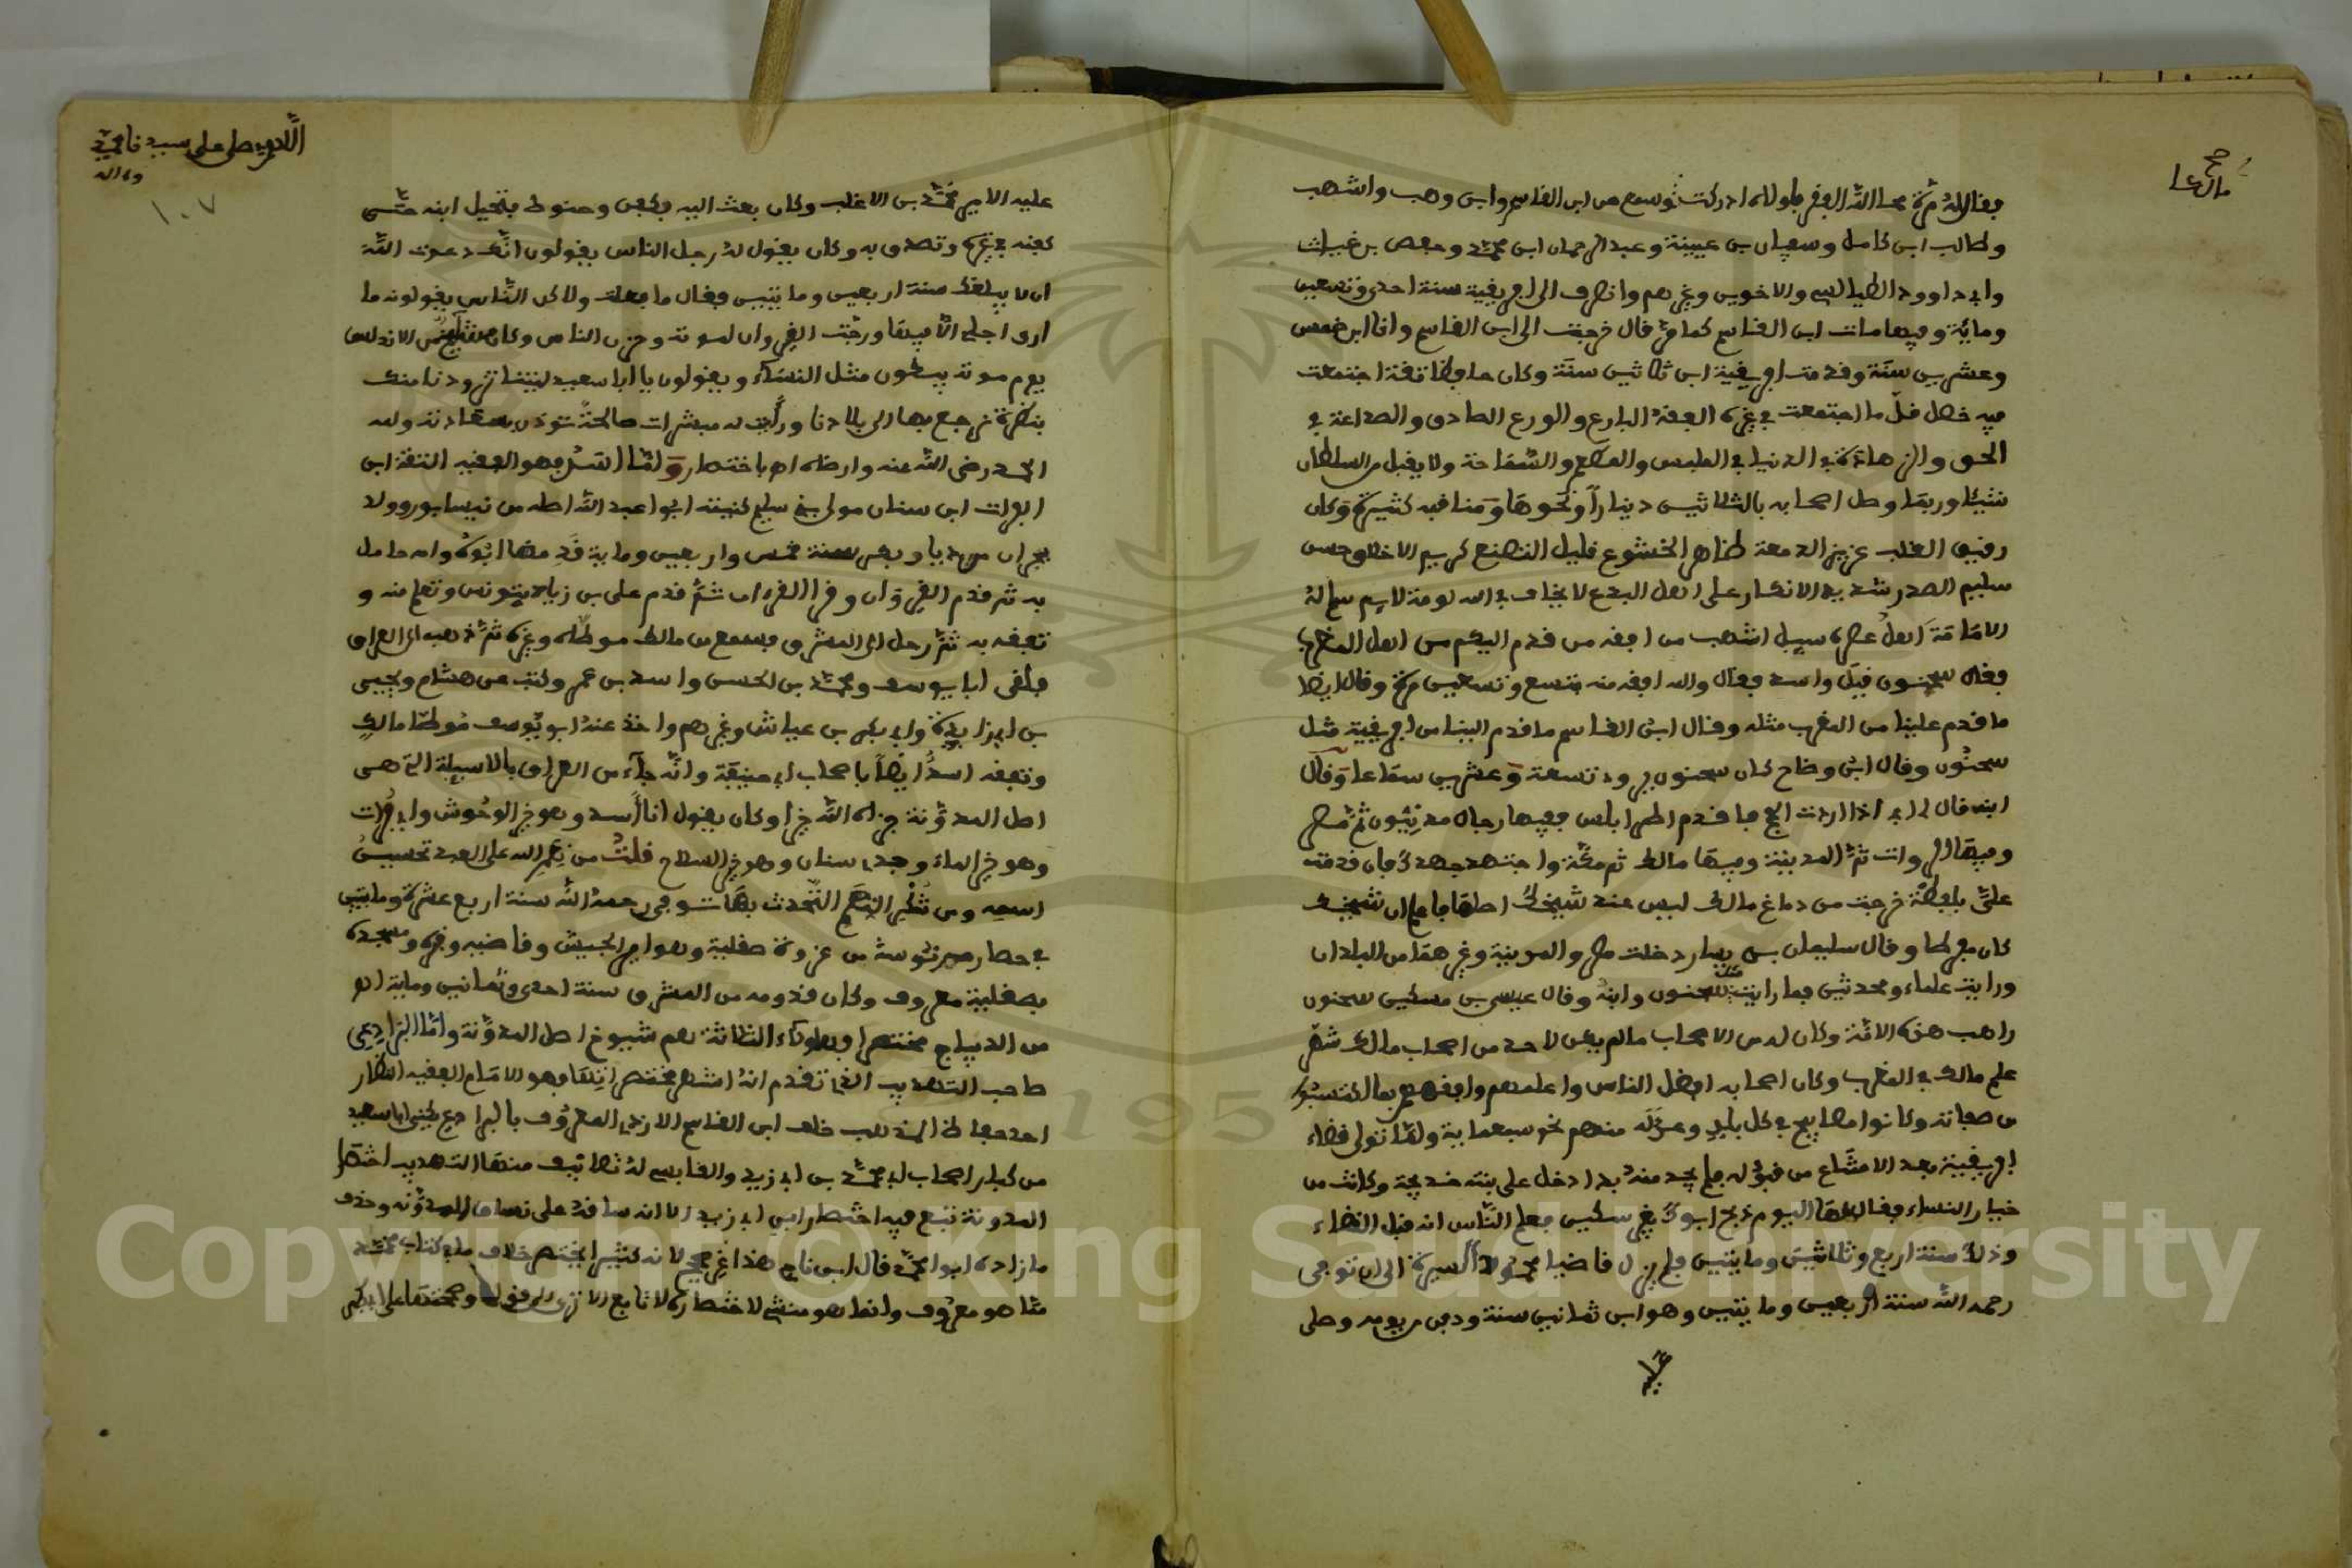 صح
مالك عا
فقال له مرة لحا الله الفقر فلولاه ادركت ثم سمع من ابن القاسم وابن وهب واشهب
وطالب ابن كامل وسفيان بن عيينة وعبد الرحمان ابن محمد وحفص بن غياث
وابي داوود الطيالسي والاخوين وغيرهم وانصرف الى افريقية سنة احدى وتسعين
وماية وفيها مات ابن القاسم كما مر قال خرجت الى ابن القاسم وانا ابن خمس
وعشرين سنة وقدمت افريقية ابن ثلاثين سنة وكان حافظا ثقة اجتمعت
فيه خصال قل ما اجتمعت في غيره الفقه البارع والورع الصادق والصداعة في
الحق والزهادة في الدنيا في الملبس والمطعم والسماحة ولا يقبل من السلطان
شيئا وربما وصل اصحابه بالثلاثين دينارا ونحوها ومناقبه كثيرة وكان
رقيق القلب عزيز الدمعة ظاهر الخشوع قليل التصنع كريم الاخلاق حسن
سليم الصدر شديد الانكار على اهل البدع لا يخاف في الله لومة لايم سلم له
الامامة اهل عصره سيل اشهب من افقه من قدم اليكم من اهل المغرب
فقال سحنون قيل واسد فقال والله افقه منه بتسع وتسعين مرة وقال ايضا
ما قدم علينا من المغرب مثله وقال ابن القاسم ما قدم الينا من افريقية مثل
سحنون وقال ابن وضاح كان سحنون يروي تسعة وعشرين سماعا وقال
ابنه قال لي ابي اذا اردت الحج فاقدم اطرابلس ففيها رجال مدنيون ثم مصر
وفيها الرواة ثم المدينة وفيها مالك ثم مكة واجتهد جهدك فان قدمت
علي بلفظة خرجت من دماغ مالك ليس عند شيخك اصلها فاعلم ان شيخك
كان مفرطا وقال سليمان بن يسار دخلت مصر والمدينة وغيرهما من البلدان
ورايت علماء ومحدثين فما رايت مثل سحنون وابنه وقال عيسى بن مسكين سحنون
راهب هذه الامة وكان له من الاصحاب ما لم يكن لاحد من اصحاب مالك شهر
علم مالك في المغرب وكان اصحابه افضل الناس واعلمهم وافقههم بما اكتسبوه
من صفاته وكانوا مصابيح في كل بلد وعد له منهم نحو سبعماية ولما تولى قضاء
افريقية بعد الامتناع من قبوله فلم يجد منه بدا دخل على بنته خديجة وكانت من
خيار النساء فقال لها اليوم ذبح ابوك بغير سكين فعلم الناس انه قبل القضاء
وذلك سنة اربع وثلاثين ومايتين فلم يزل قاضيا محمود السيرة الى ان توفي
رحمه الله سنة اربعين ومايتين وهو ابن ثمانين سنة ودفن من يومه وصلى
عليه
اللهم صل على سيدنا محمد
وءاله
١٠٧
عليه الامير محمد بن الاغلب وكان بعث اليه بكفن وحنوط فتحيل ابنه حتى
كفنه في غيره وتصدق به وكان يقول له رجل الناس يقولون انك دعوت الله
ان لا يبلغك سنة اربعين ومايتين فقال ما فعلت ولاكن الناس يقولونه ما
ارى اجلي الا فيها ورجت القيروان لموته وحزن الناس وكان مشايخ من الاندلس
يوم موته يبكون مثل النساء ويقولون يا ابا سعيد ليتنا تزودنا منك
بنظرة نرجع بها الى بلادنا ورئيت له مبشرات صالحة تؤذن بسعادته ولله
الحمد رضي الله عنه وارضاه اهـ باختصار واما اسد فهو الفقيه الثقة ابن
الفرات ابن سنان مولى بني سليم كنيته ابوا عبد الله اصله من نيسابور وولد
بحران من ديار بكر سنة خمس واربعين وماية قدم بها ابوه وامه حامل
به ثم قدم القيروان وقرا القرءان ثم قدم على بن زياد بتونس وتعلم منه و
تفقه به ثم رحل الى المشرق فسمع من مالك موطاه وغيره ثم ذهب الى العراق
فلقي ابا يوسف ومحمد بن الحسن واسد بن عمر وكتب عن هشام ويحيى
بن ابي زايدة وابي بكر بن عياش وغيرهم واخذ عنه ابو يوسف موطا مالك
وتفقه اسد ايضا باصحاب ابي حنيفة وانه جاء من العراق بالاسيلة التي هي
اصل المدونة جزاه الله خيرا وكان يقول انا اسد وهو خير الوحوش وابي فرات
وهو خير الماء وجدي سنان وهو خير السلاح قلت من نعم الله على العبد تحسين
اسمه ومن شكر النعم التحدث بها توفي رحمه الله سنة اربع عشرة ومايتين
في حصار سرقوسة من غزوة صقلية وهو امير الجيش وقاضيه وقبره ومسجده
بصقلية معروف وكان قدومه من المشرق سنة احدى وثمانين وماية اهـ
من الديباج مختصرا وهولاء الثلاثة هم شيوخ اصل المدونة واما البرادعي
صاحب التهذيب الذي تقدم انه اشهر مختصراتها فهو الامام الفقيه النظار
احد حفاظ المذهب خلف ابن القاسم الازدي المعروف بالبرادعي يكنى ابا سعيد
من كبار اصحاب ابي محمد بن ابي زيد والقابسي له تصانيف منها التهذيب اختصار
المدونة تبع فيه اختصار ابن ابي زيد الا انه ساقه على نساق المدونة وحذف
ما زاده ابوا محمد قال ابن ناجي هذا غير صحيح لانه كثيرا يختصر خلاف ما في كتاب محمد
مما هو معروف وانما هو منشئ لاختصاره لا تابع الا ترى الى قوله وصححتها على ابي بكر